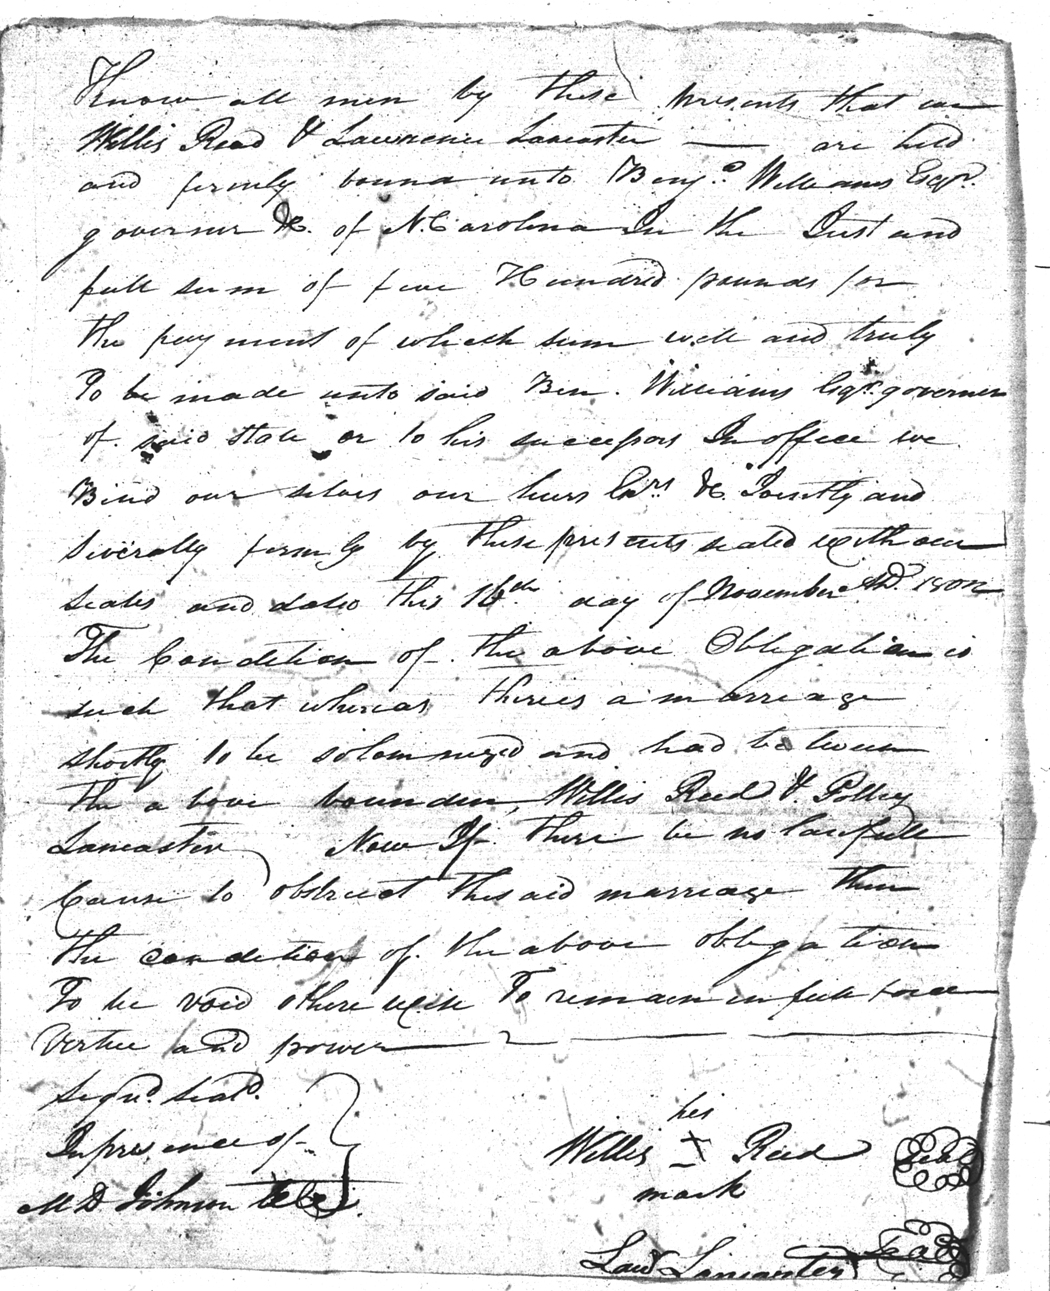 Know all men by these presents that we
Willis Reed & Lawrence Lancaster — are held
and firmly bound unto Benj.ª Williams Esqr.
governer &c. of N. Carolina In the Just and
full sum of five Hundred pounds for
the payment of which sum well and truly
To be made unto said Ben. Williams Esqr. governer
of said state or to his successors In office we
Bind our selves our heirs Exrs &c Jointly and
severally firmly by these presents sealed with our
seales and dated this 16th day of November AD.
The Condition of the above Obligation is
such that whereas there is a marriage
shortly to be solomnized and had between
the above bounden, Willis Reed & Polley
Lancaster Now If there be no lawfull
Cause to obstruct the said marriage then
the condition of the above obligation
To be void otherwise To remain in full force
Vertue and power —
Signd. seald.
In presence of
M D Johnson
his
Willis X Reed Seal
mark
Lawr Lancaster Seal